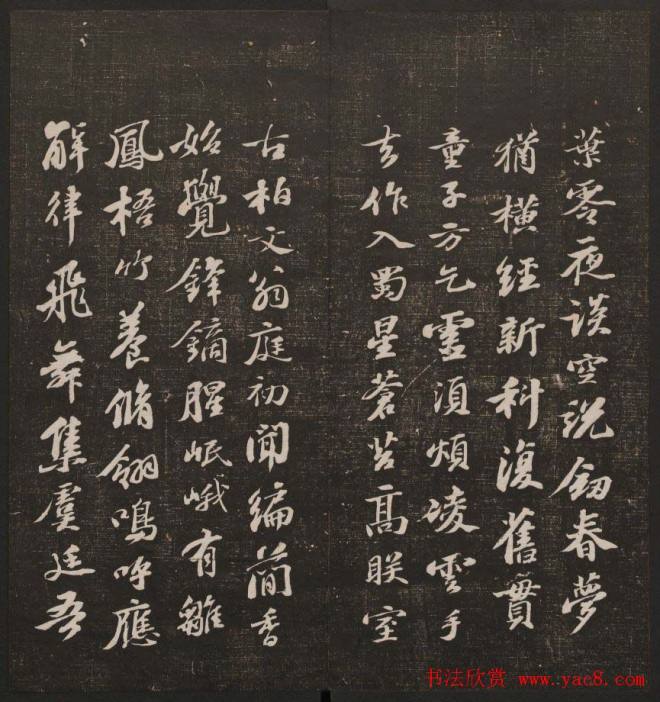 葉零夜談空説劒春夢
猶橫經新科復舊貫
童子方乞靈須煩凌雲手
去作入蜀星蒼苔高眹室
古柏文翁庭初聞編簡香
始覺鋒鏑腥岷峨有雛
鳳梧竹養脩翎鳴呼應
解律飛舞集虞廷吾
书法欣赏 www.yac8.com